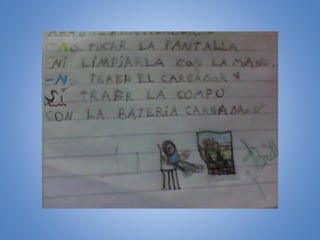 -No TOCAR LA PANTALLA
NI LIMPIARLA CON LA MANO.
-No TRAER EL CARGADOR Y
SÍ TRAER LA COMPU
CON LA BATERIA CARGADA.